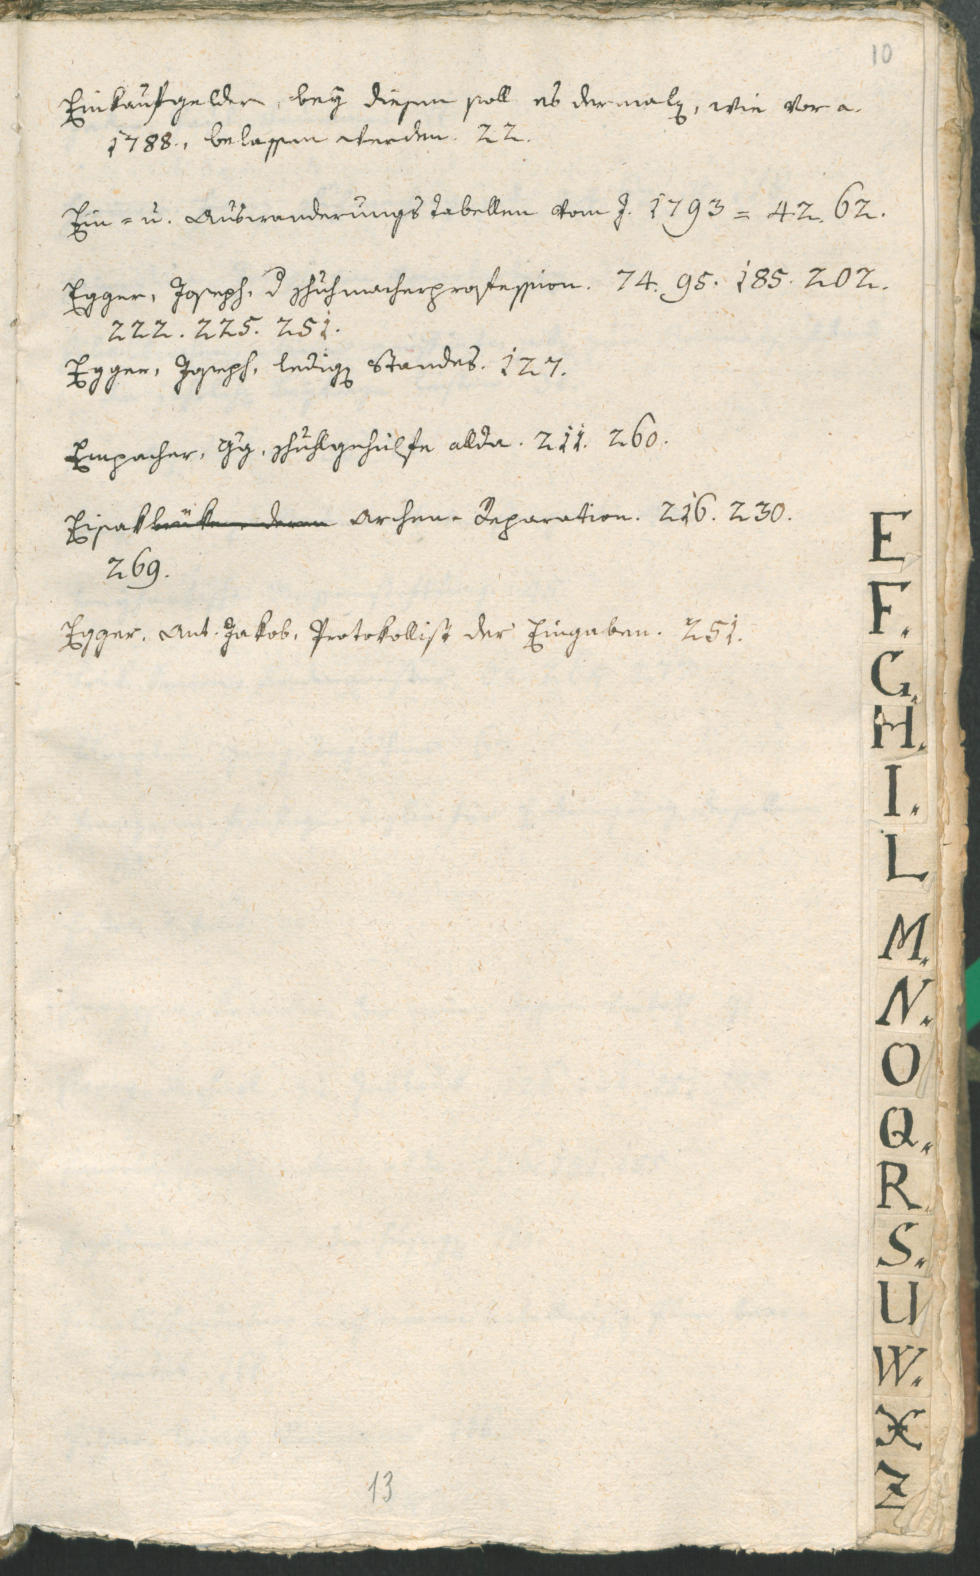 10
Einkaufgelder, bey diesen soll es dermalen, wie vor a.
1788., belassen werden. 22.
Ein- u. Auswanderungs Tabellen vom J. 1793 = 42. 62.
Egger, Joseph, Schuhmacherprofession. 74. 95. 185. 202.
222. 225. 251.
Egger, Joseph, ledigen Standes. 127.
Empacher, Gg, Schuhlgehülfe allda. 211. 260.
Eisakbrüken deren Archen-Reparation. 216. 230.
269.
Egger, Ant. Jakob, Protokollist der Eingaben. 251.
E
F.
G.
H.
I.
L
M.
N.
O
Q.
R.
S.
U
W.
X
Z
13